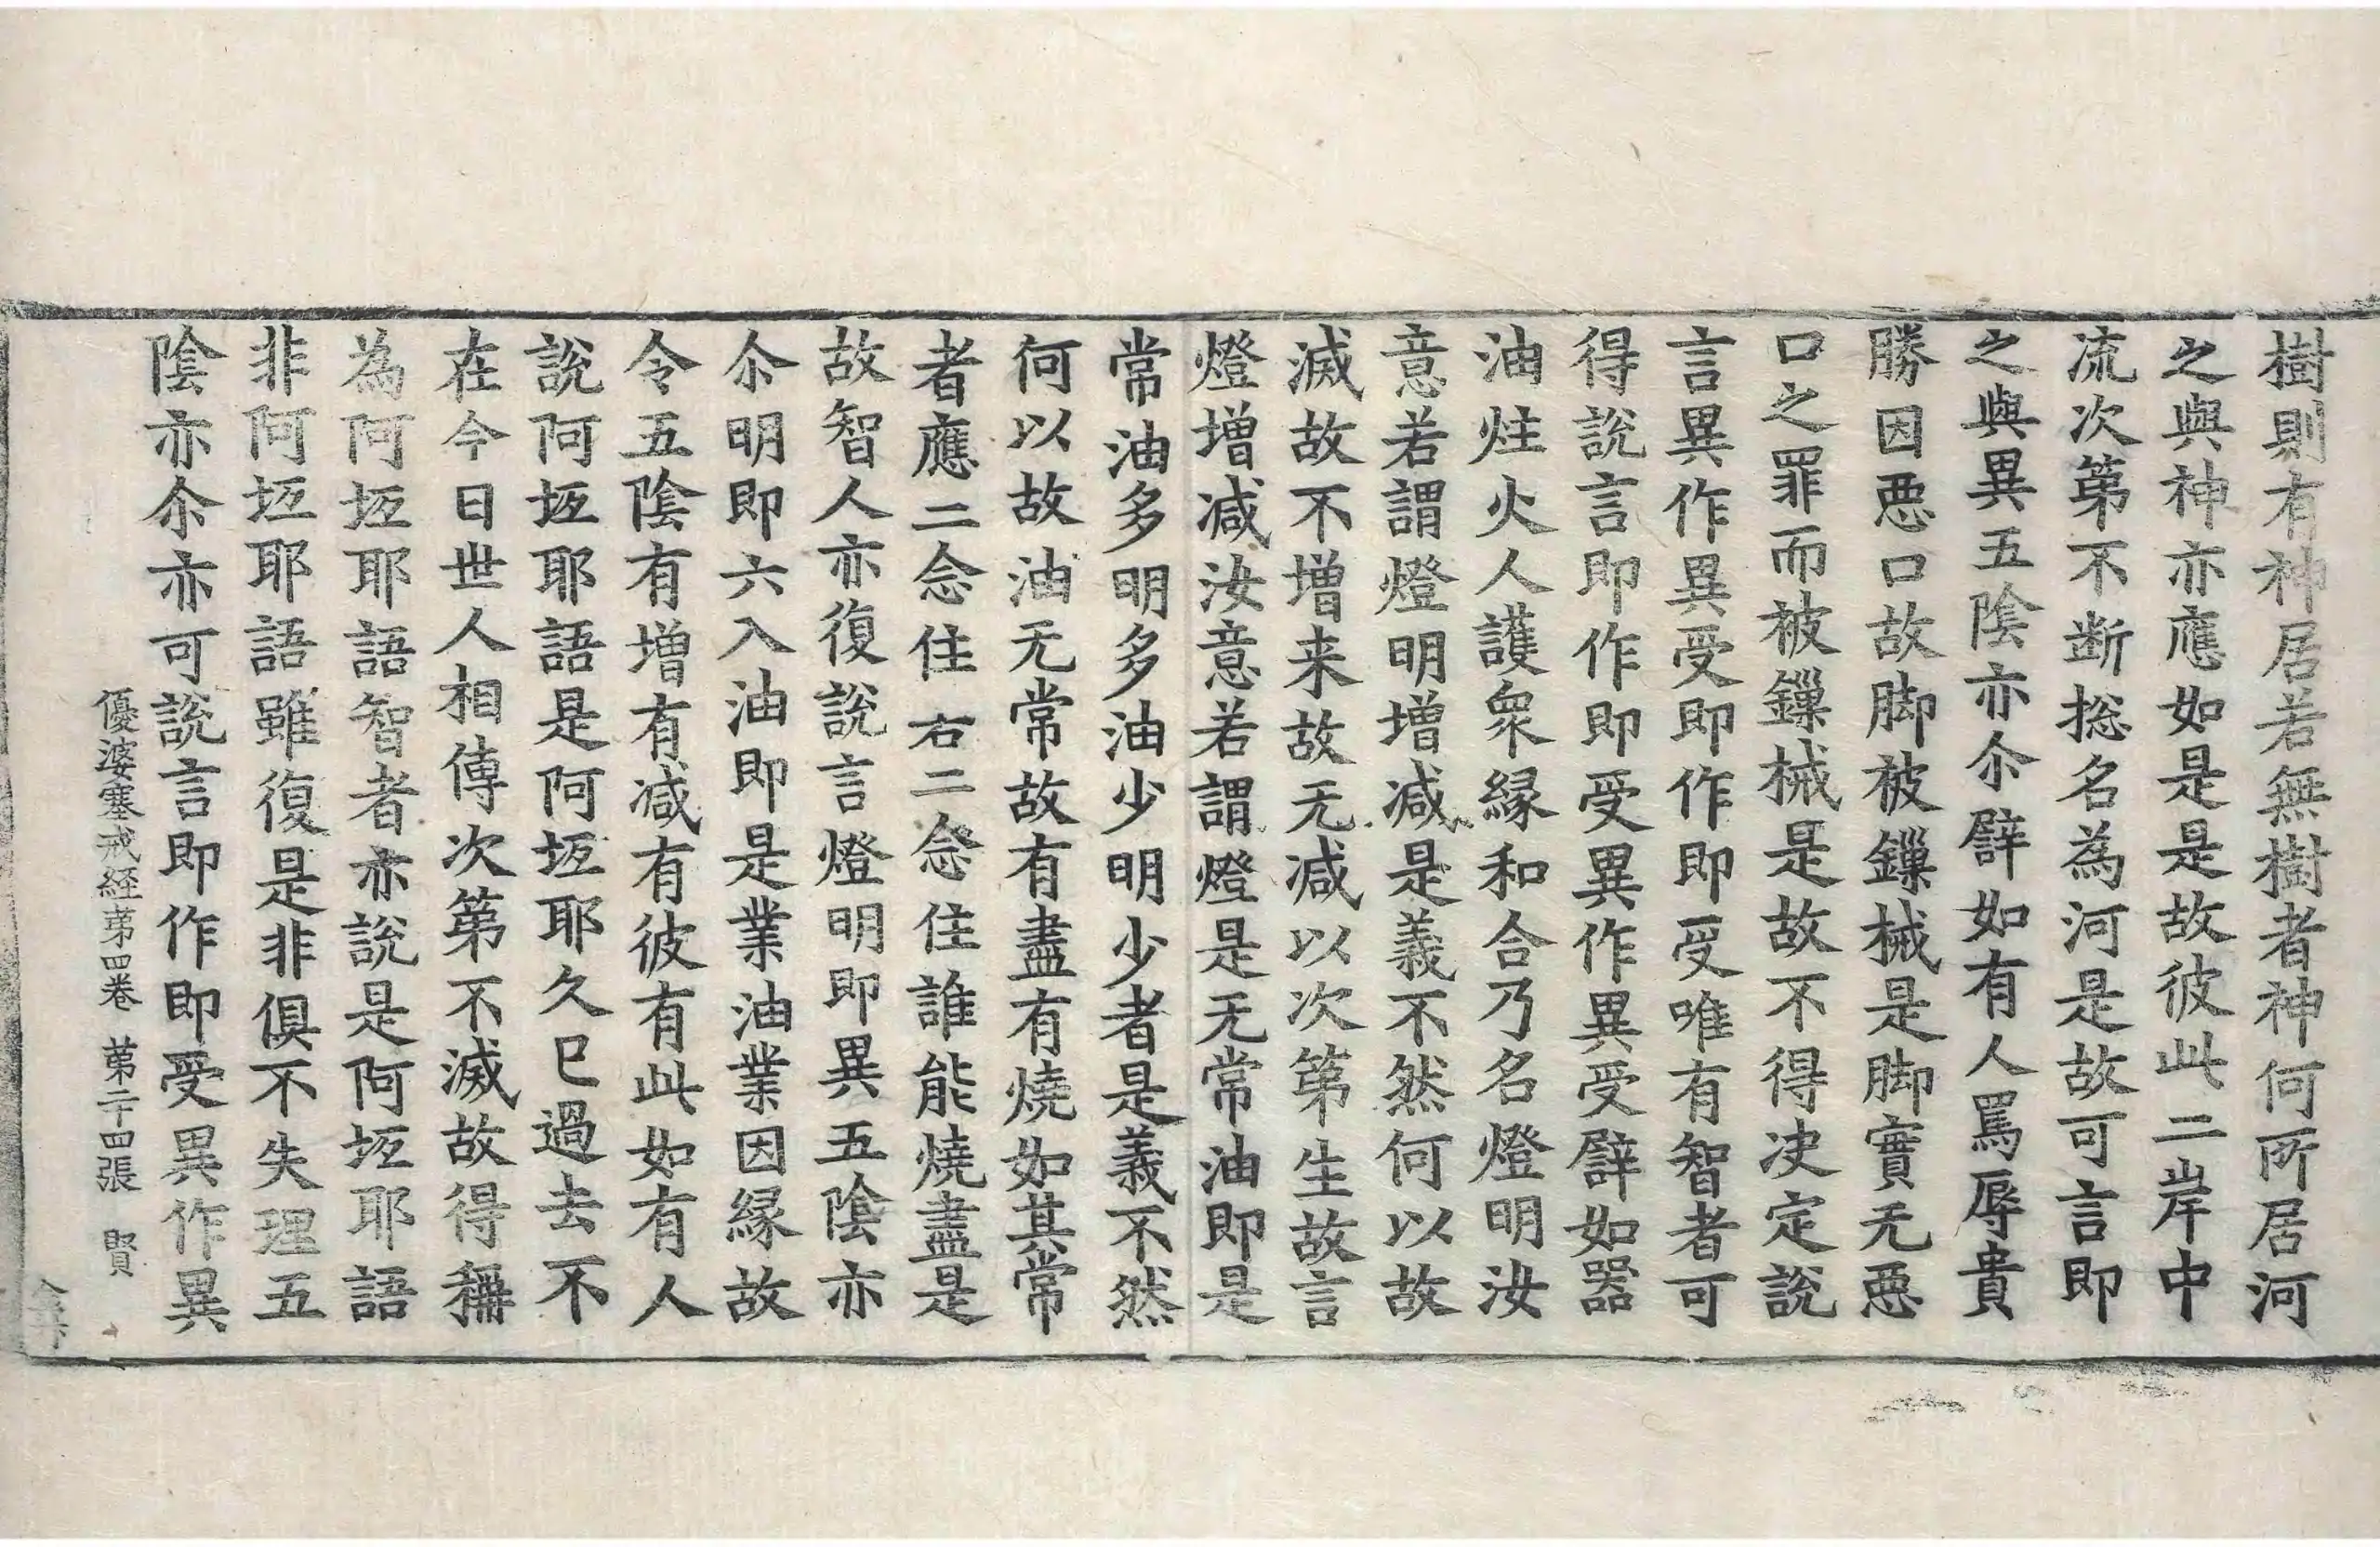 樹則有神居若無樹者神何所居河
之與神亦應如是是故彼此二岸中
流次第不断捴名為河是故可言即
之與異五陰亦尒譬如有人罵辱貴
勝因惡口故脚被鏁械是脚實无惡
口之罪而被鏁械是故不得决定説
言異作異受即作即受唯有智者可
得説言即作即受異作異受譬如器
油炷火人護衆縁和合乃名燈明汝
意若謂燈明增减是義不然何以故
滅故不增来故无减以次第生故言
燈增减汝意若謂燈是无常油即是
常油多明多油少明少者是義不然
何以故油无常故有盡有燒如其常
者應二念住右二念住誰能燒盡是
故智人亦復説言燈明即異五陰亦
尒明即六入油即是業油業因縁故
令五陰有增有减有彼有此如有人
説阿坻耶語是阿坻耶久已過去不
在今日世人相傳次第不滅故得稱
為阿坻耶語智者亦説是阿坻耶語
非阿坻耶語雖復是非俱不失理五
陰亦尒亦可説言即作即受異作異
優婆塞戒経苐四卷 苐二十四張 賢